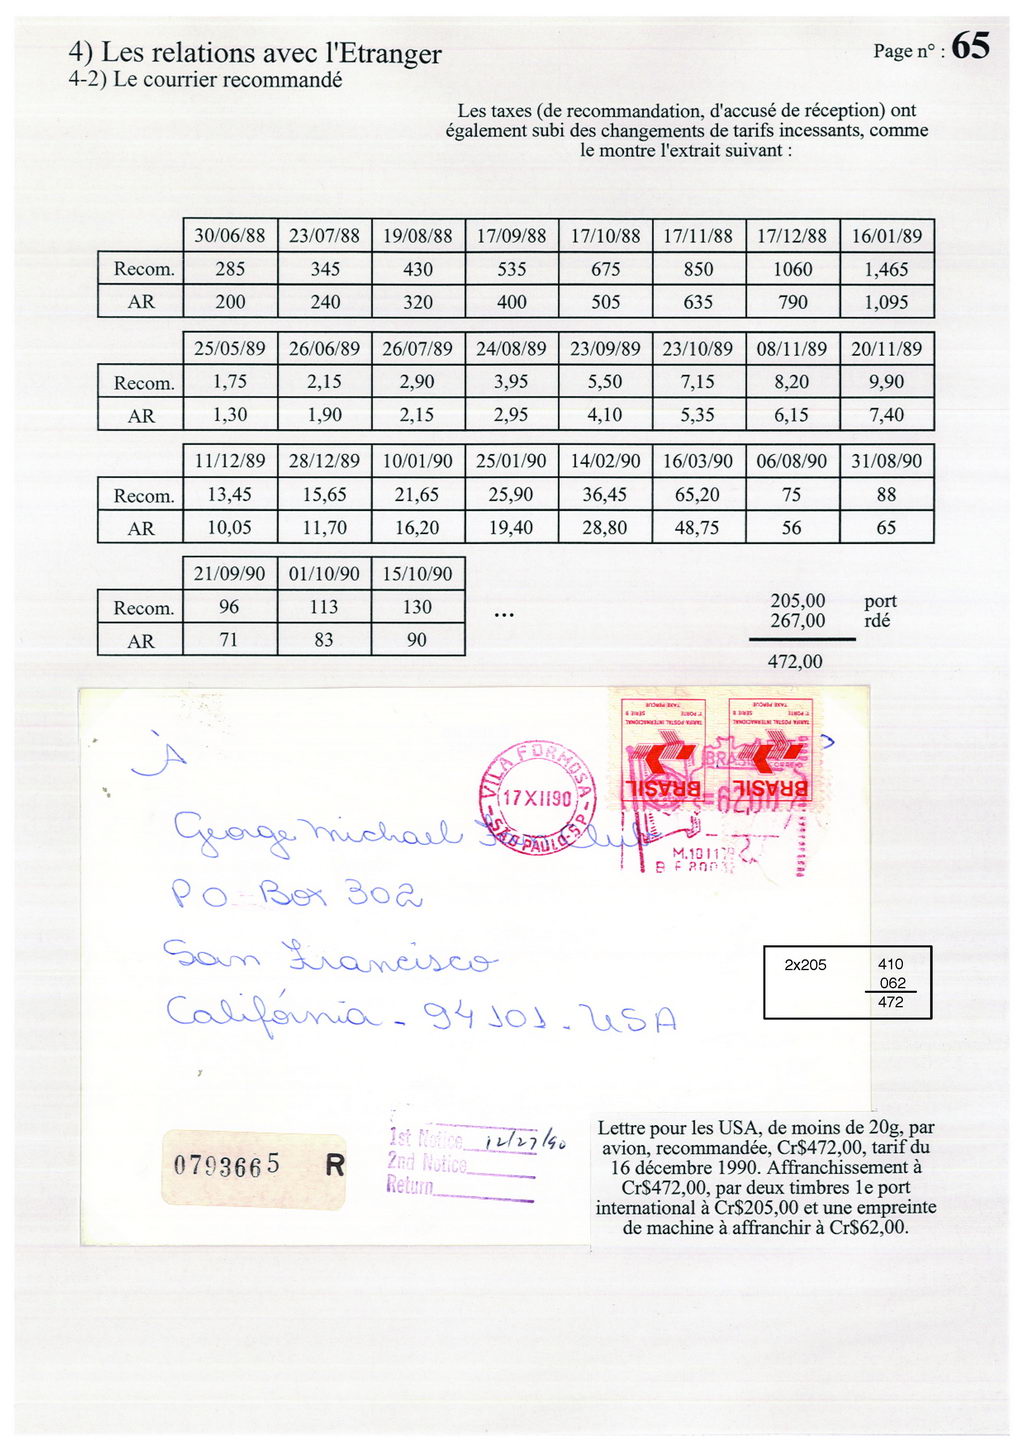 4) Les relations avec l'Etranger
Page n° : 65
4-2) Le courrier recommandé
Les taxes (de recommandation, d'accusé de réception) ont
également subi des changements de tarifs incessants, comme
le montre l'extrait suivant :
30/06/88 23/07/88 19/08/88 17/09/88 17/10/88 17/11/88 17/12/88 16/01/89
Recom. 285 345 430 535 675 850 1060 1,465
AR 200 240 320 400 505 635 790 1,095
25/05/89 26/06/89 26/07/89 24/08/89 23/09/89 23/10/89 08/11/89 20/11/89
Recom. 1,75 2,15 2,90 3,95 5,50 7,15 8,20 9,90
AR 1,30 1,90 2,15 2,95 4,10 5,35 6,15 7,40
11/12/89 28/12/89 10/01/90 25/01/90 14/02/90 16/03/90 06/08/90 31/08/90
Recom. 13,45 15,65 21,65 25,90 36,45 65,20 75 88
AR 10,05 11,70 16,20 19,40 28,80 48,75 56 65
21/09/90 01/10/90 15/10/90
Recom. 96 113 130 ...
AR 71 83 90
205,00 port
267,00 rdé
472,00
TAXE PERÇUE TAXE PERÇUE
1º PORTE SÉRIE B 1º PORTE SÉRIE B
TARIFA POSTAL INTERNACIONAL TARIFA POSTAL INTERNACIONAL
BRASIL BRASIL
VILA FORMOSA
17XII90
SÃO PAULO-SP
À
George Michael
PO Box 302
San Francisco
Califórnia - 94101 - USA
2x205 410
062
472
0793665 R
1st Notice 12/27/90
2nd Notice
Return
Lettre pour les USA, de moins de 20g, par
avion, recommandée, Cr$472,00, tarif du
16 décembre 1990. Affranchissement à
Cr$472,00, par deux timbres 1e port
international à Cr$205,00 et une empreinte
de machine à affranchir à Cr$62,00.